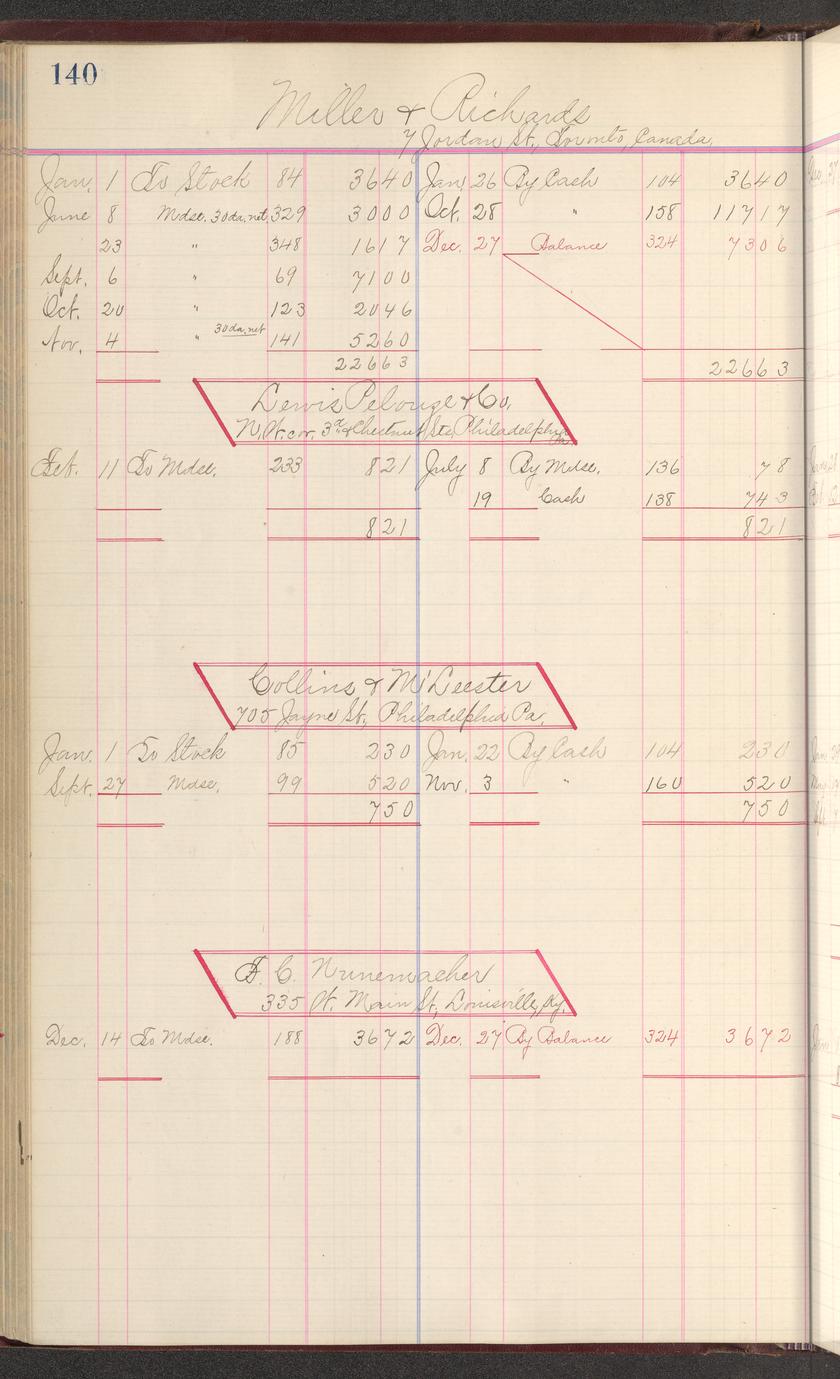 140
Miller & Richards
7 Jordan St., Toronto, Canada,
Jan. 1 To Stock 84 3640 Jan. 26 By Cash 104 3640
June 8 Mdse. 30 da. net 329 3000 Oct. 28 " 158 11717
23 " 348 1617 Dec. 27 Balance 324 7306
Sept. 6 " 69 7100
Oct. 20 " 123 2046
Nov. 4 " 30 da. net 141 5260
22663 22663
Lewis Pelouze & Co.
N.W. cor. 3d & Chestnut Sts, Philadelphia Pa.
Feb. 11 To Mdse. 233 821 July 8 By Mdse. 136 78
19 Cash 138 743
821 821
Collins & M'Leester
705 Jayne St., Philadelphia Pa,
Jan. 1 To Stock 85 230 Jan. 22 By Cash 104 230
Sept. 27 Mdse. 99 520 Nov. 3 " 160 520
750 750
F. C. Nunemacher
335 W. Main St, Louisville, Ky.
Dec. 14 To Mdse. 188 3672 Dec. 27 By Balance 324 3672